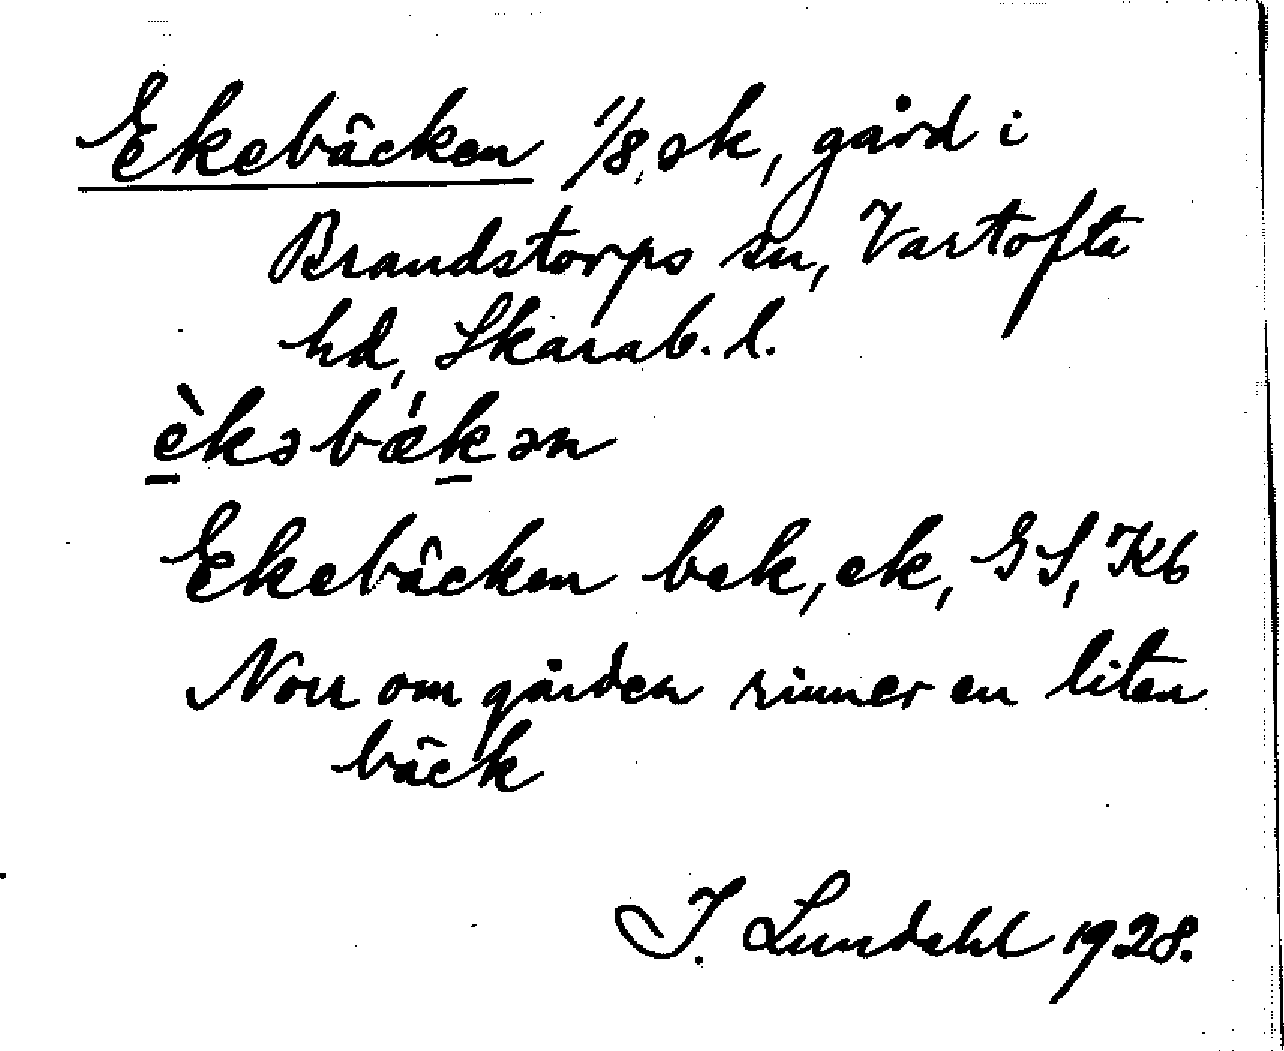 Ekebäcken 1/8, sk, gård i
Brandstorps sn, Vartofta
hd, Skarab. l.
è̱kəbæ̍ḵən
Ekebäcken bek, ek, GS, Kb
Norr om gården rinner en liten
bäck
I. Lundahl 1928.